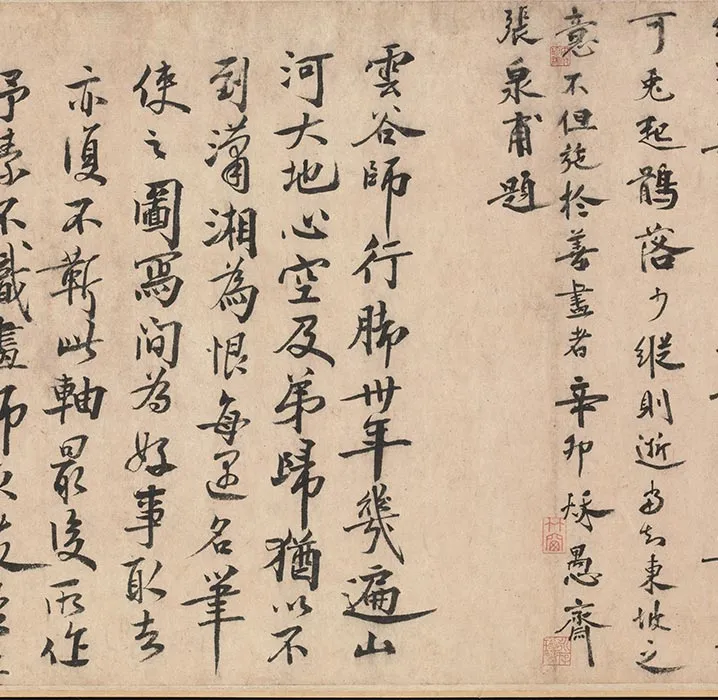 可兔起鶻落少縱則逝當知東坡之
意不但施於善畫者辛卯秌愚齋
張泉甫題
雲谷師行脚卅年幾遍山
河大地心空及第歸猶以不
到瀟湘為恨每遇名筆
使之圖寫間為好事取去
亦復不靳此軸最後所作
予素不識畫師